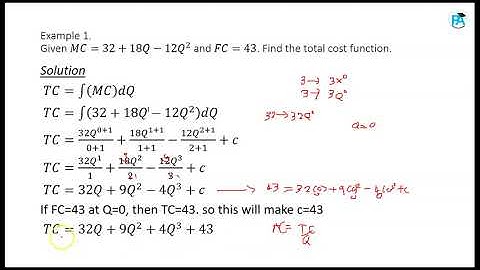 Example 1.
Given MC = 32 + 18Q − 12Q² and FC = 43. Find the total cost function.
Solution
TC = ∫(MC)dQ
TC = ∫(32 + 18Q − 12Q²)dQ
TC = 32Q⁰⁺¹/0+1 + 18Q¹⁺¹/1+1 − 12Q²⁺¹/2+1 + c
TC = 32Q¹/1 + 18Q²/2 − 12Q³/3 + c
TC = 32Q + 9Q² − 4Q³ + c
If FC=43 at Q=0, then TC=43. so this will make c=43
TC = 32Q + 9Q² + 4Q³ + 43
3 → 3x⁰
3 → 3Q⁰
32 → 32Q⁰
Q=0
AC = TC/Q